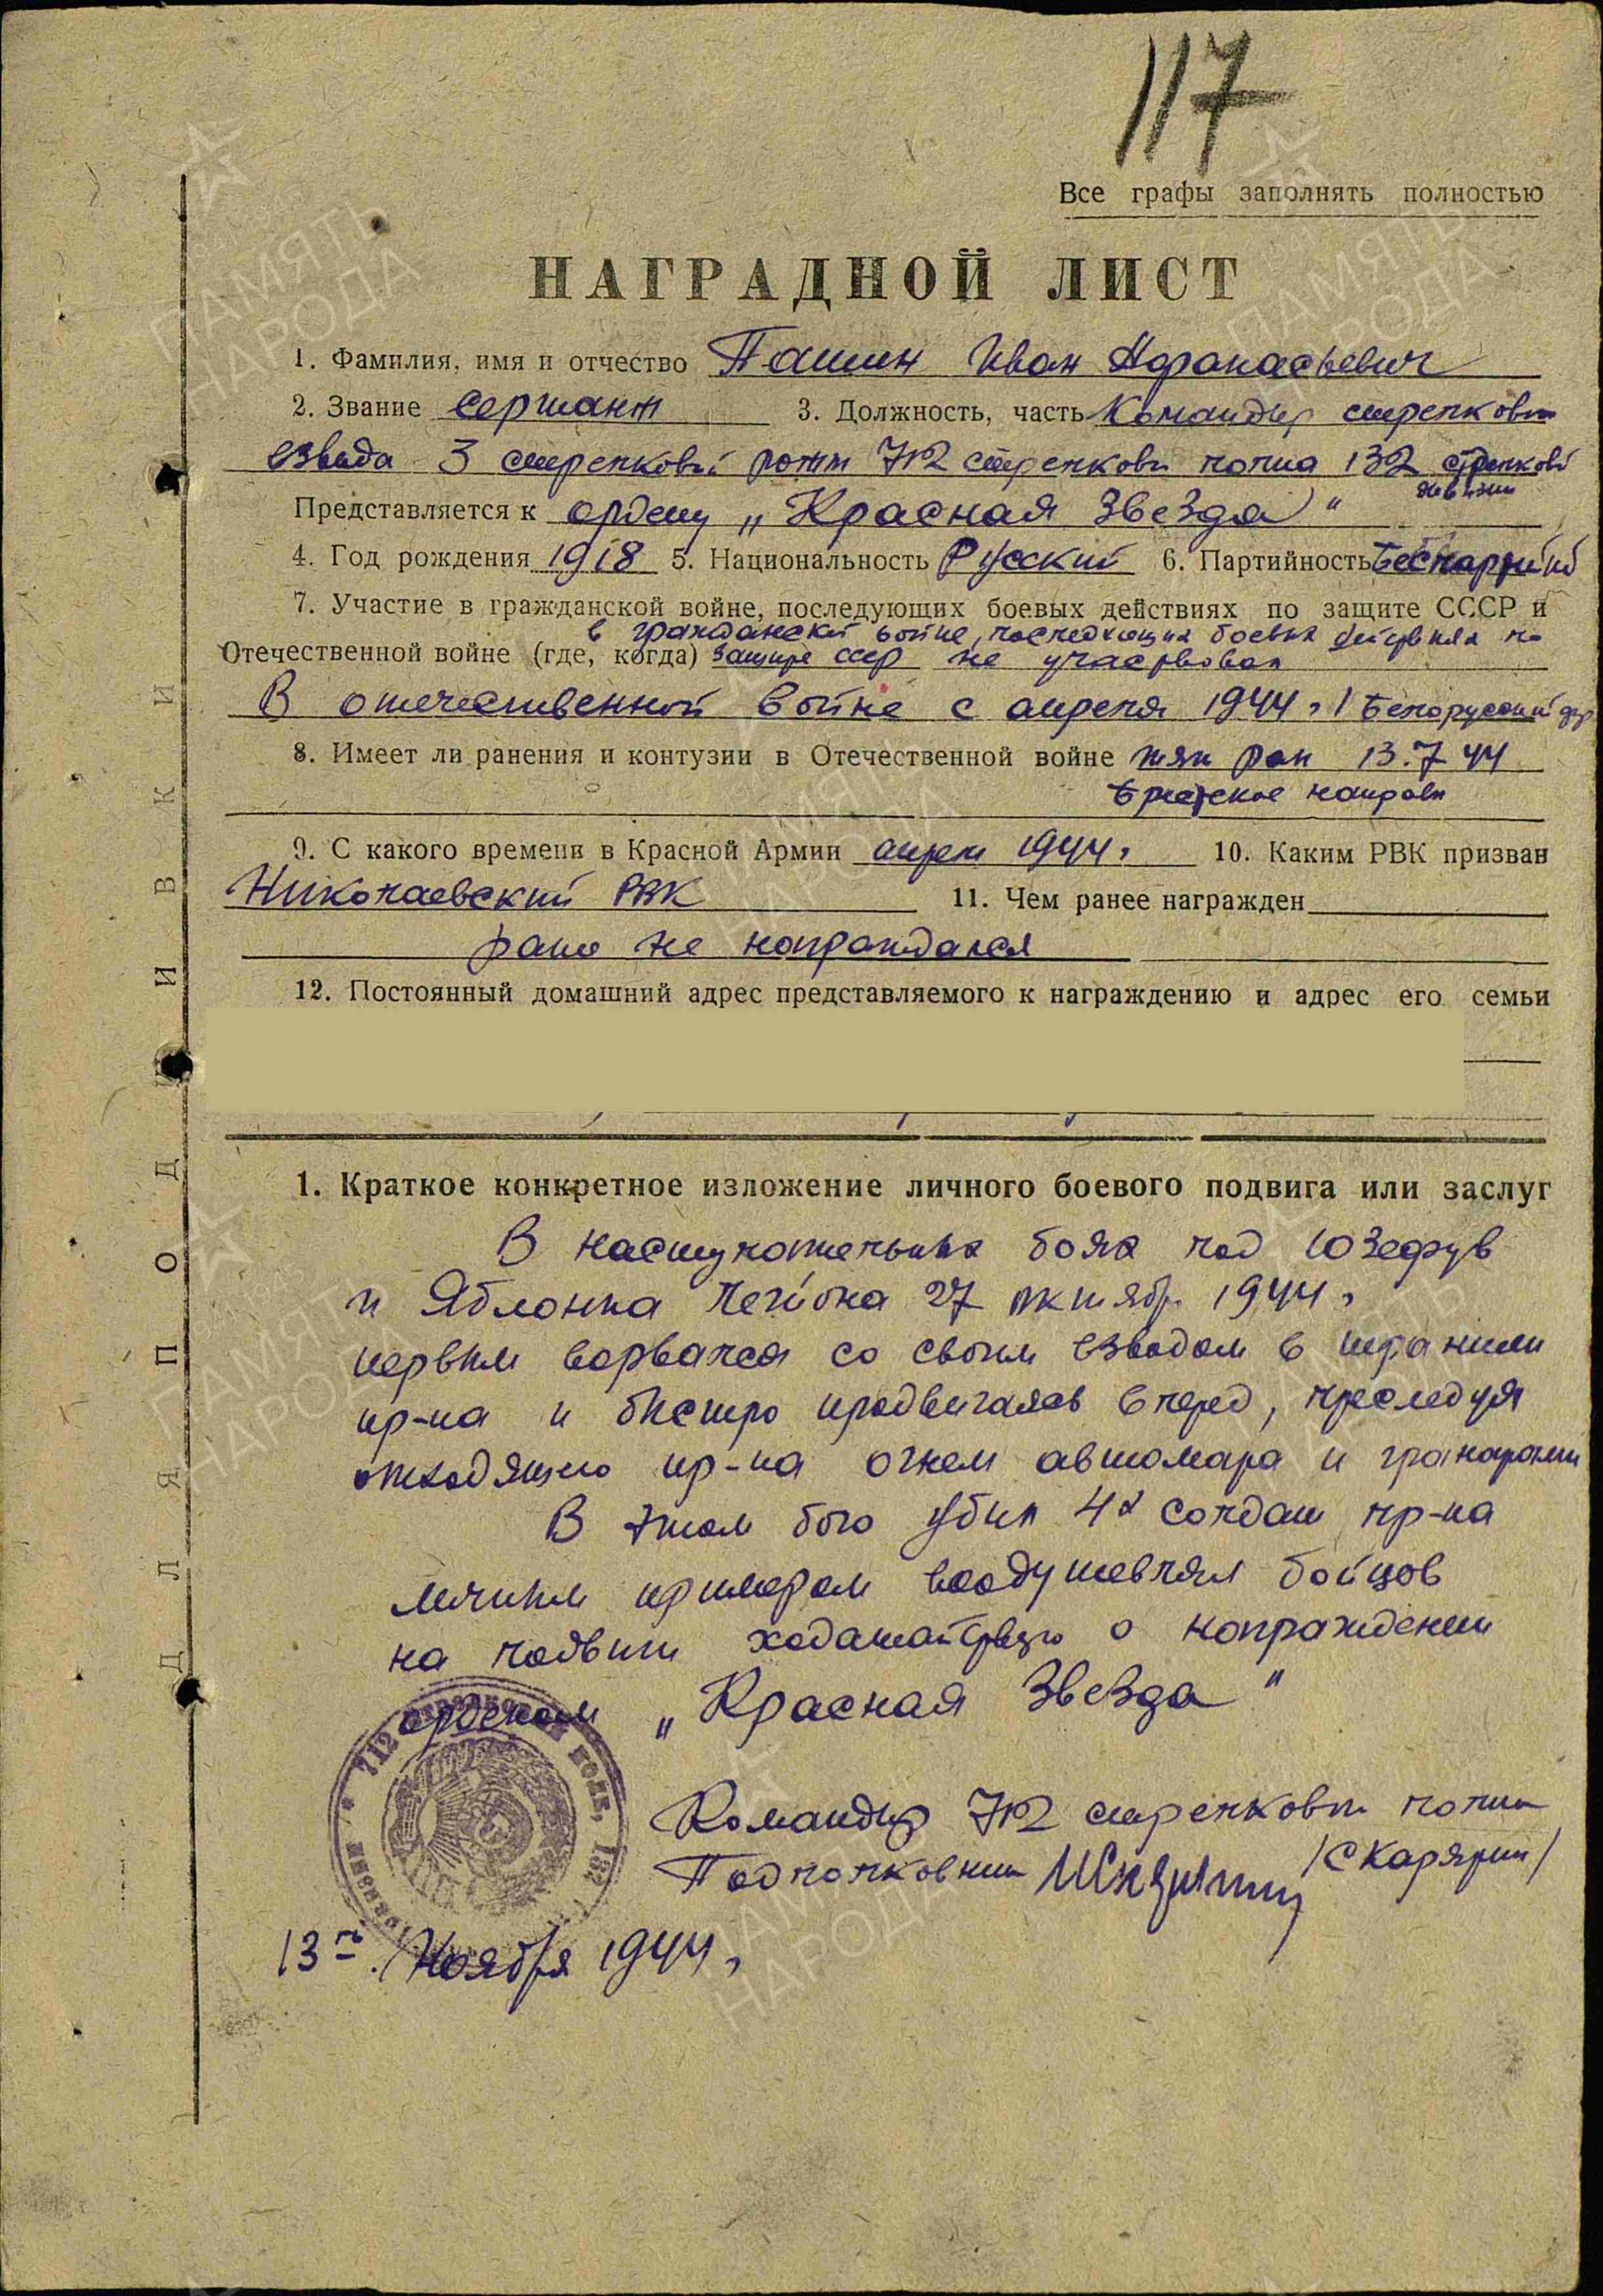 117
Все графы заполнять полностью
НАГРАДНОЙ ЛИСТ
1. Фамилия, имя и отчество Пашин Иван Афанасьевич
2. Звание сержант 3. Должность, часть Командир стрелковый
взвода 3 стрелковой роты 712 стрелковы полка 132 стрелковой
дивизии
Представляется к ордену „Красная Звезда"
4. Год рождения 1918 5. Национальность Русский 6. Партийность Беспартийный
7. Участие в гражданской войне, последующих боевых действиях по защите СССР и
в гражданской войне, последующих боевых действиях по
Отечественной войне (где, когда) защите ссср не участвовал
В отечественной войне с апреля 1944 г. 1 Белорусский фр
8. Имеет ли ранения и контузии в Отечественной войне тяж ран 13.7 44
Брестское направл
9. С какого времени в Красной Армии апрель 1944 г. 10. Каким РВК призван
Николаевский РВК 11. Чем ранее награжден
ране не награждался
12. Постоянный домашний адрес представляемого к награждению и адрес его семьи
1. Краткое конкретное изложение личного боевого подвига или заслуг
В наступательных боях под Юзефув
и Яблонна Легиона 27 октябр 1944 г.
первым ворвался со своим взводом в траншеи
пр-ка и быстро продвигаясь вперед, преследуя
отходящего пр-ка огнем автомата и гранатами
В этом бою убил 4х солдат пр-ка
личным примером воодушевлял бойцов
на подвиги ходатайствую о награждении
орденом „Красная Звезда"
Командир 712 стрелковы полка
Подполковник /Скарятин/
13го Ноября 1944 г.
712 стрелковый полк, 132
ДЛЯ ПОДШИВКИ
ПАМЯТЬ
НАРОДА